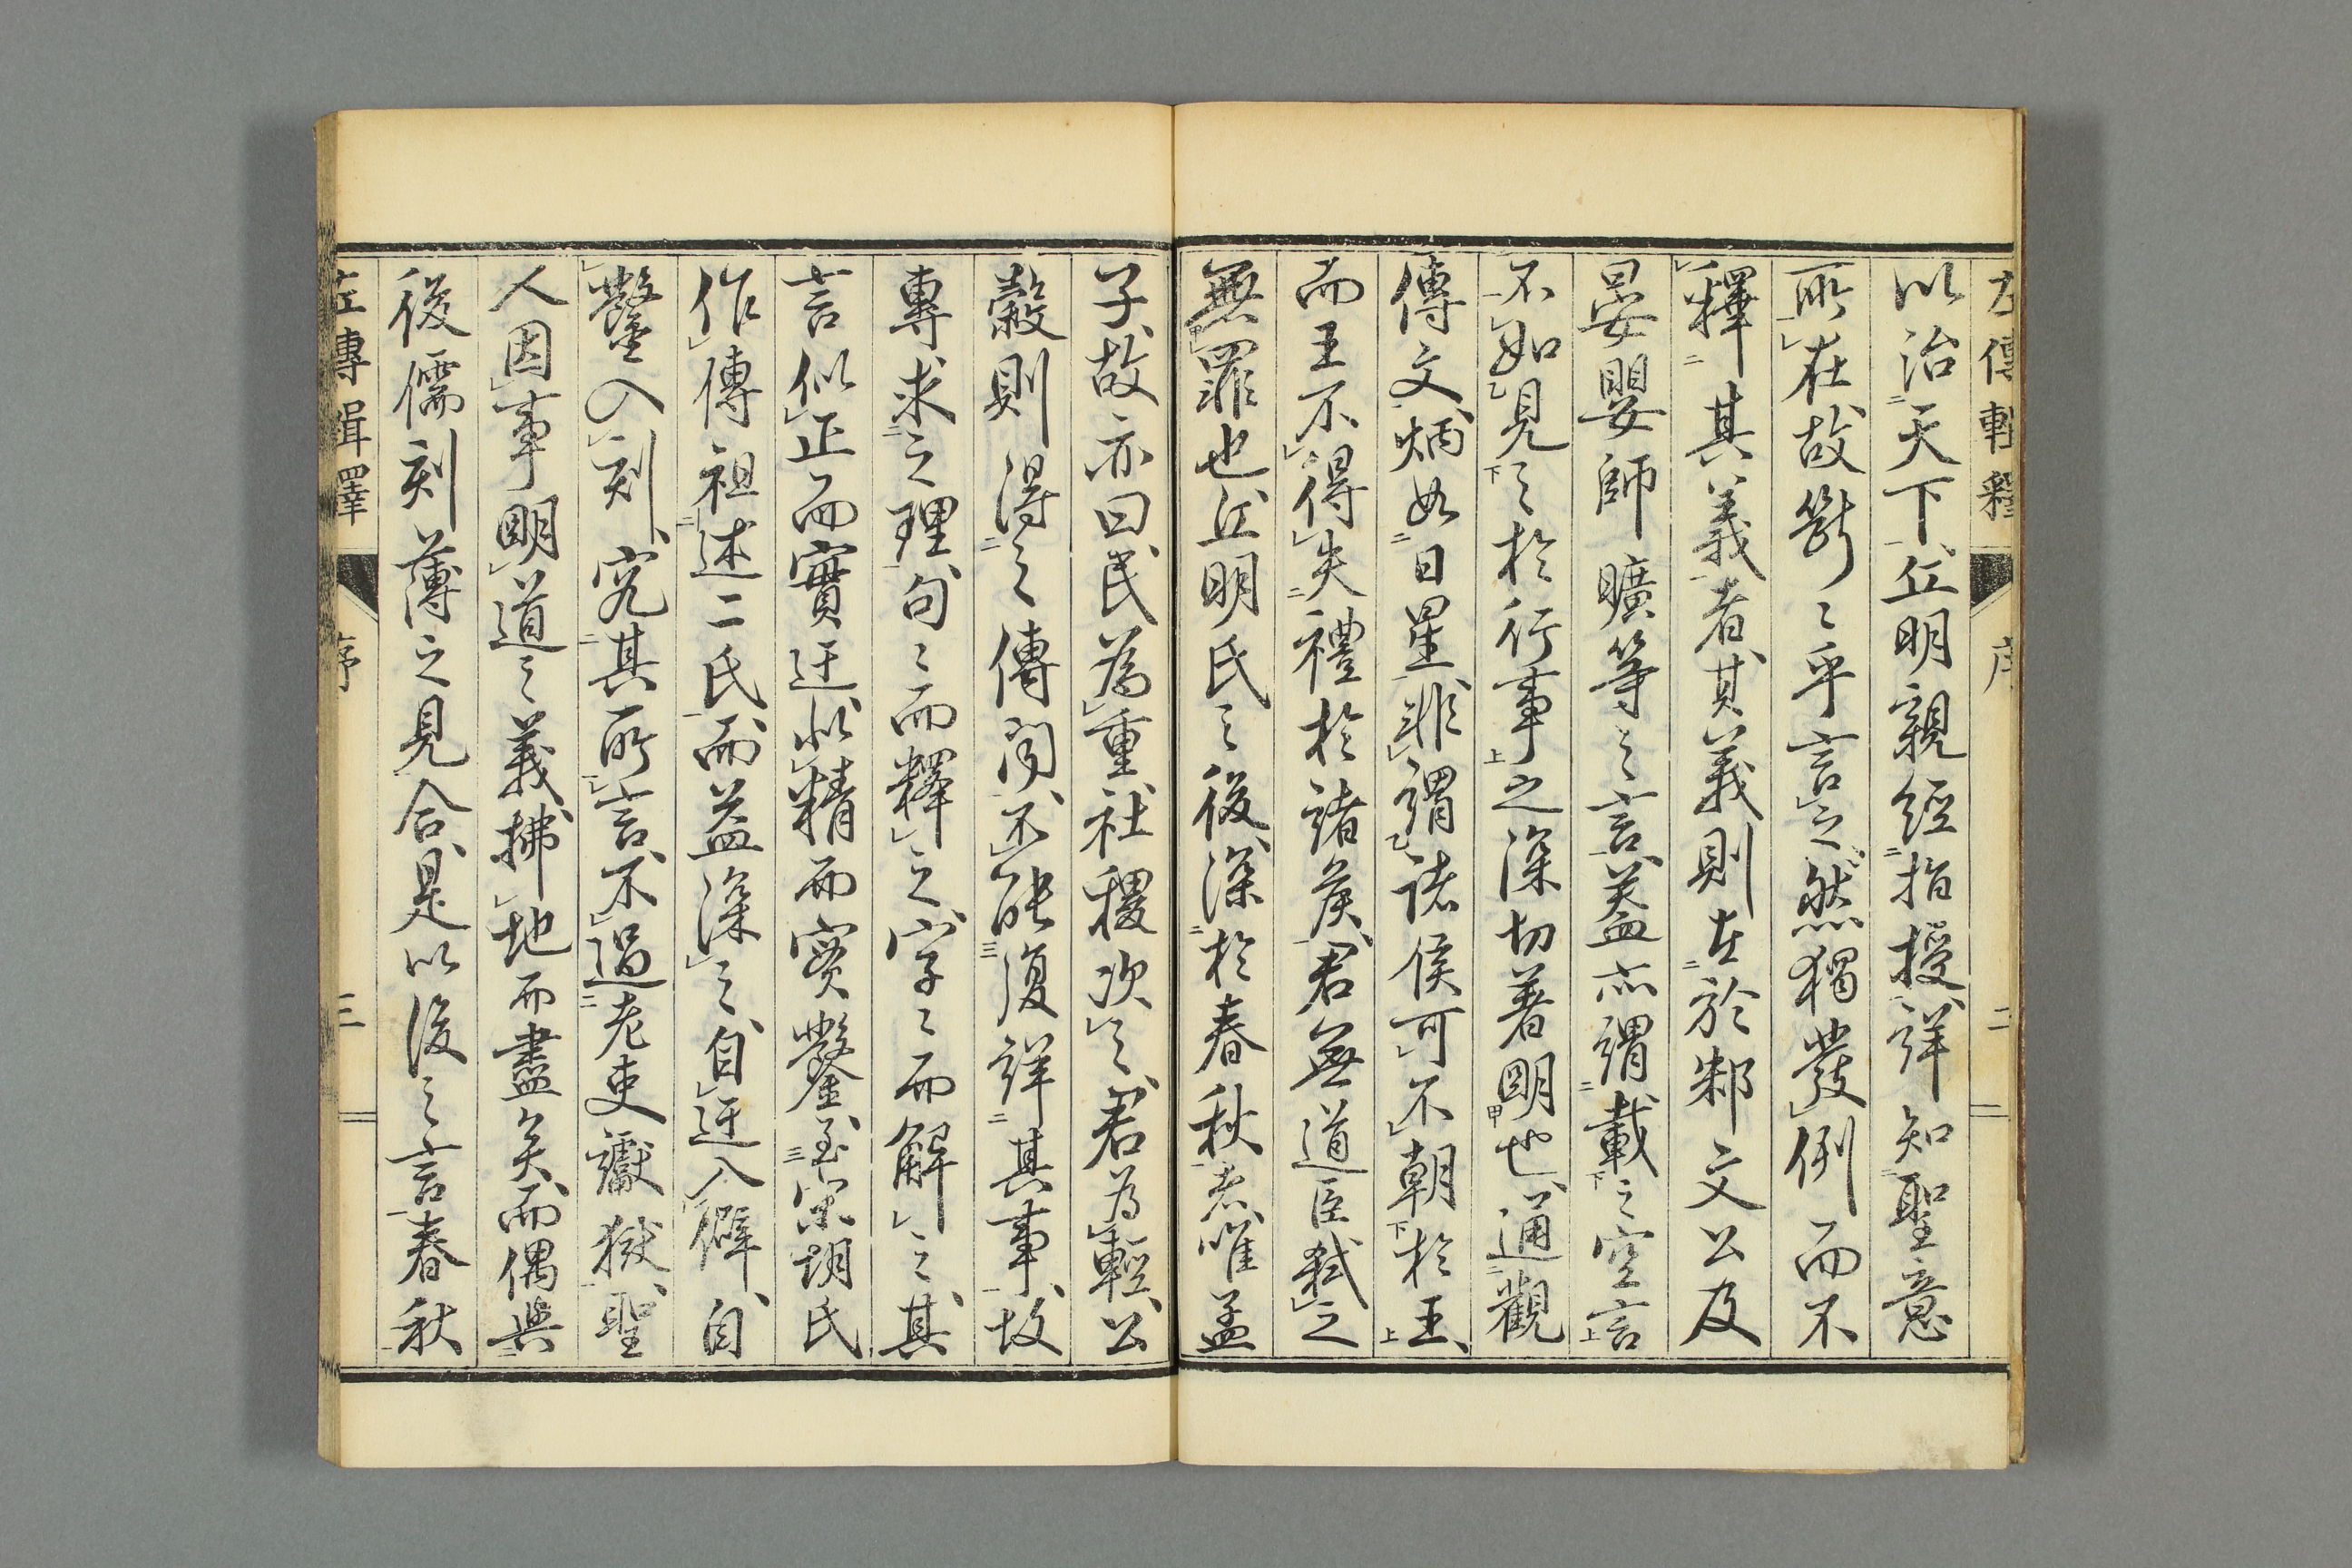 左傳輯釋 序 二
以治天下、丘明親經指授、詳知聖意
所在、故斷〻乎言之、然獨發例而不
釋其義者、其義則在於邾文公及
晏嬰師曠等之言、蓋亦謂載之空言
不如見之於行事之深切著明也、通觀
傳文、炳如日星、非謂諸侯可不朝於王、
而王不得失禮於諸侯、君無道臣弒之
無罪也、丘明氏之後、深於春秋者唯孟
子、故亦曰、民為重、社稷次之、君為輕、公
穀則得之傳聞、不能復詳其事、故
專求之理、句〻而釋之、字〻而解之、其
言似正而實迂、似精而實鑿、至宋胡氏
作傳、祖述二氏、而益深之、自迂入僻、自
鑿入刻、究其所言、不過老吏讞獄、聖
人因事明道之義、拂地而盡矣、而偶與
後儒刻薄之見合、是以後之言春秋
左傳輯釋 序 三